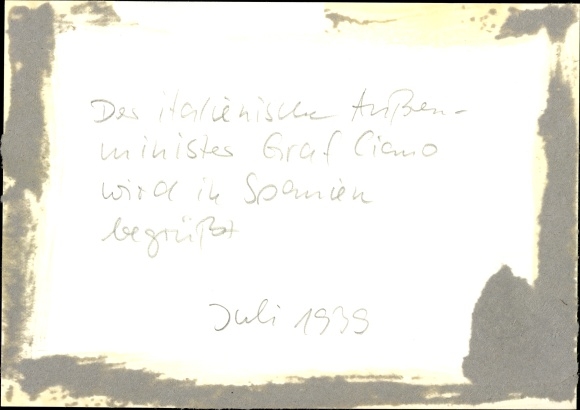 Der italienische Außen-
minister Graf Ciano
wird in Spanien
begrüßt
Juli 1939